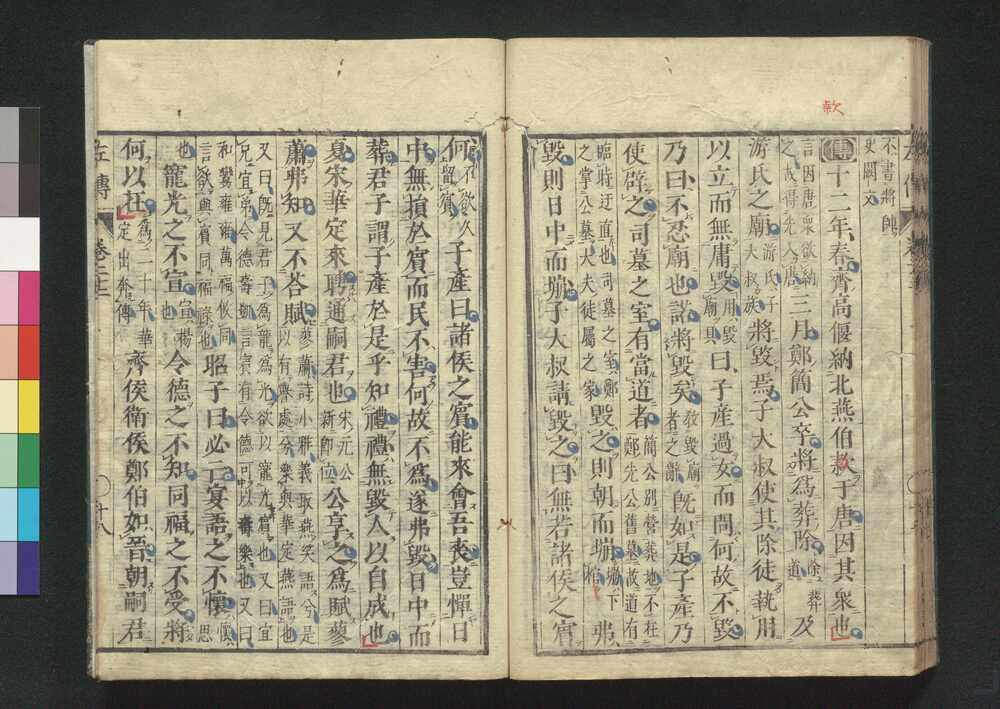 欸
不書將帥
史闕文
傳十二年春齊高偃納北燕伯款于唐因其衆也
言因唐衆欲納之故得先入唐三月鄭簡公卒將爲葬除除葬道及
游氏之廟游氏子大叔族將毀焉子大叔使其除徒執用
以立而無庸毀用毀廟具曰子產過女而問何故不毀
乃曰不忍廟也諾將毀矣教毀廟者之辭既如是子產乃
使辟之司墓之室有當道者簡公別營葬地不在鄭先公舊墓故道有
臨時迂直也司墓之室鄭之掌公墓大夫徒屬之家毀之則朝而塴塴下棺弗
毀則日中而塴子大叔請毀之曰無若諸侯之賓
何不欲久留賓子產曰諸侯之賓能來會吾喪豈憚日
中無損於賓而民不害何故不爲遂弗毀日中而
葬君子謂子產於是乎知禮禮無毀人以自成也
夏宋華定來聘通嗣君也宋元公新即位公享之爲賦蓼
蕭弗知又不荅賦蓼蕭詩小雅義取燕笑語兮是以有譽處兮樂與華定燕語也
又曰既見君子爲龍爲光欲以寵光賓也又曰宜兄宜弟令德壽凱言賓有令德可以壽樂也又曰
和鸞雍雍萬福攸同言欲與賓同福祿也昭子曰必亡宴語之不懷懷思
也寵光之不宣宣揚也令德之不知同福之不受將
何以在爲二十年華定出奔傳齊侯衛侯鄭伯如晉朝嗣君
左傳 卷二十二 十八